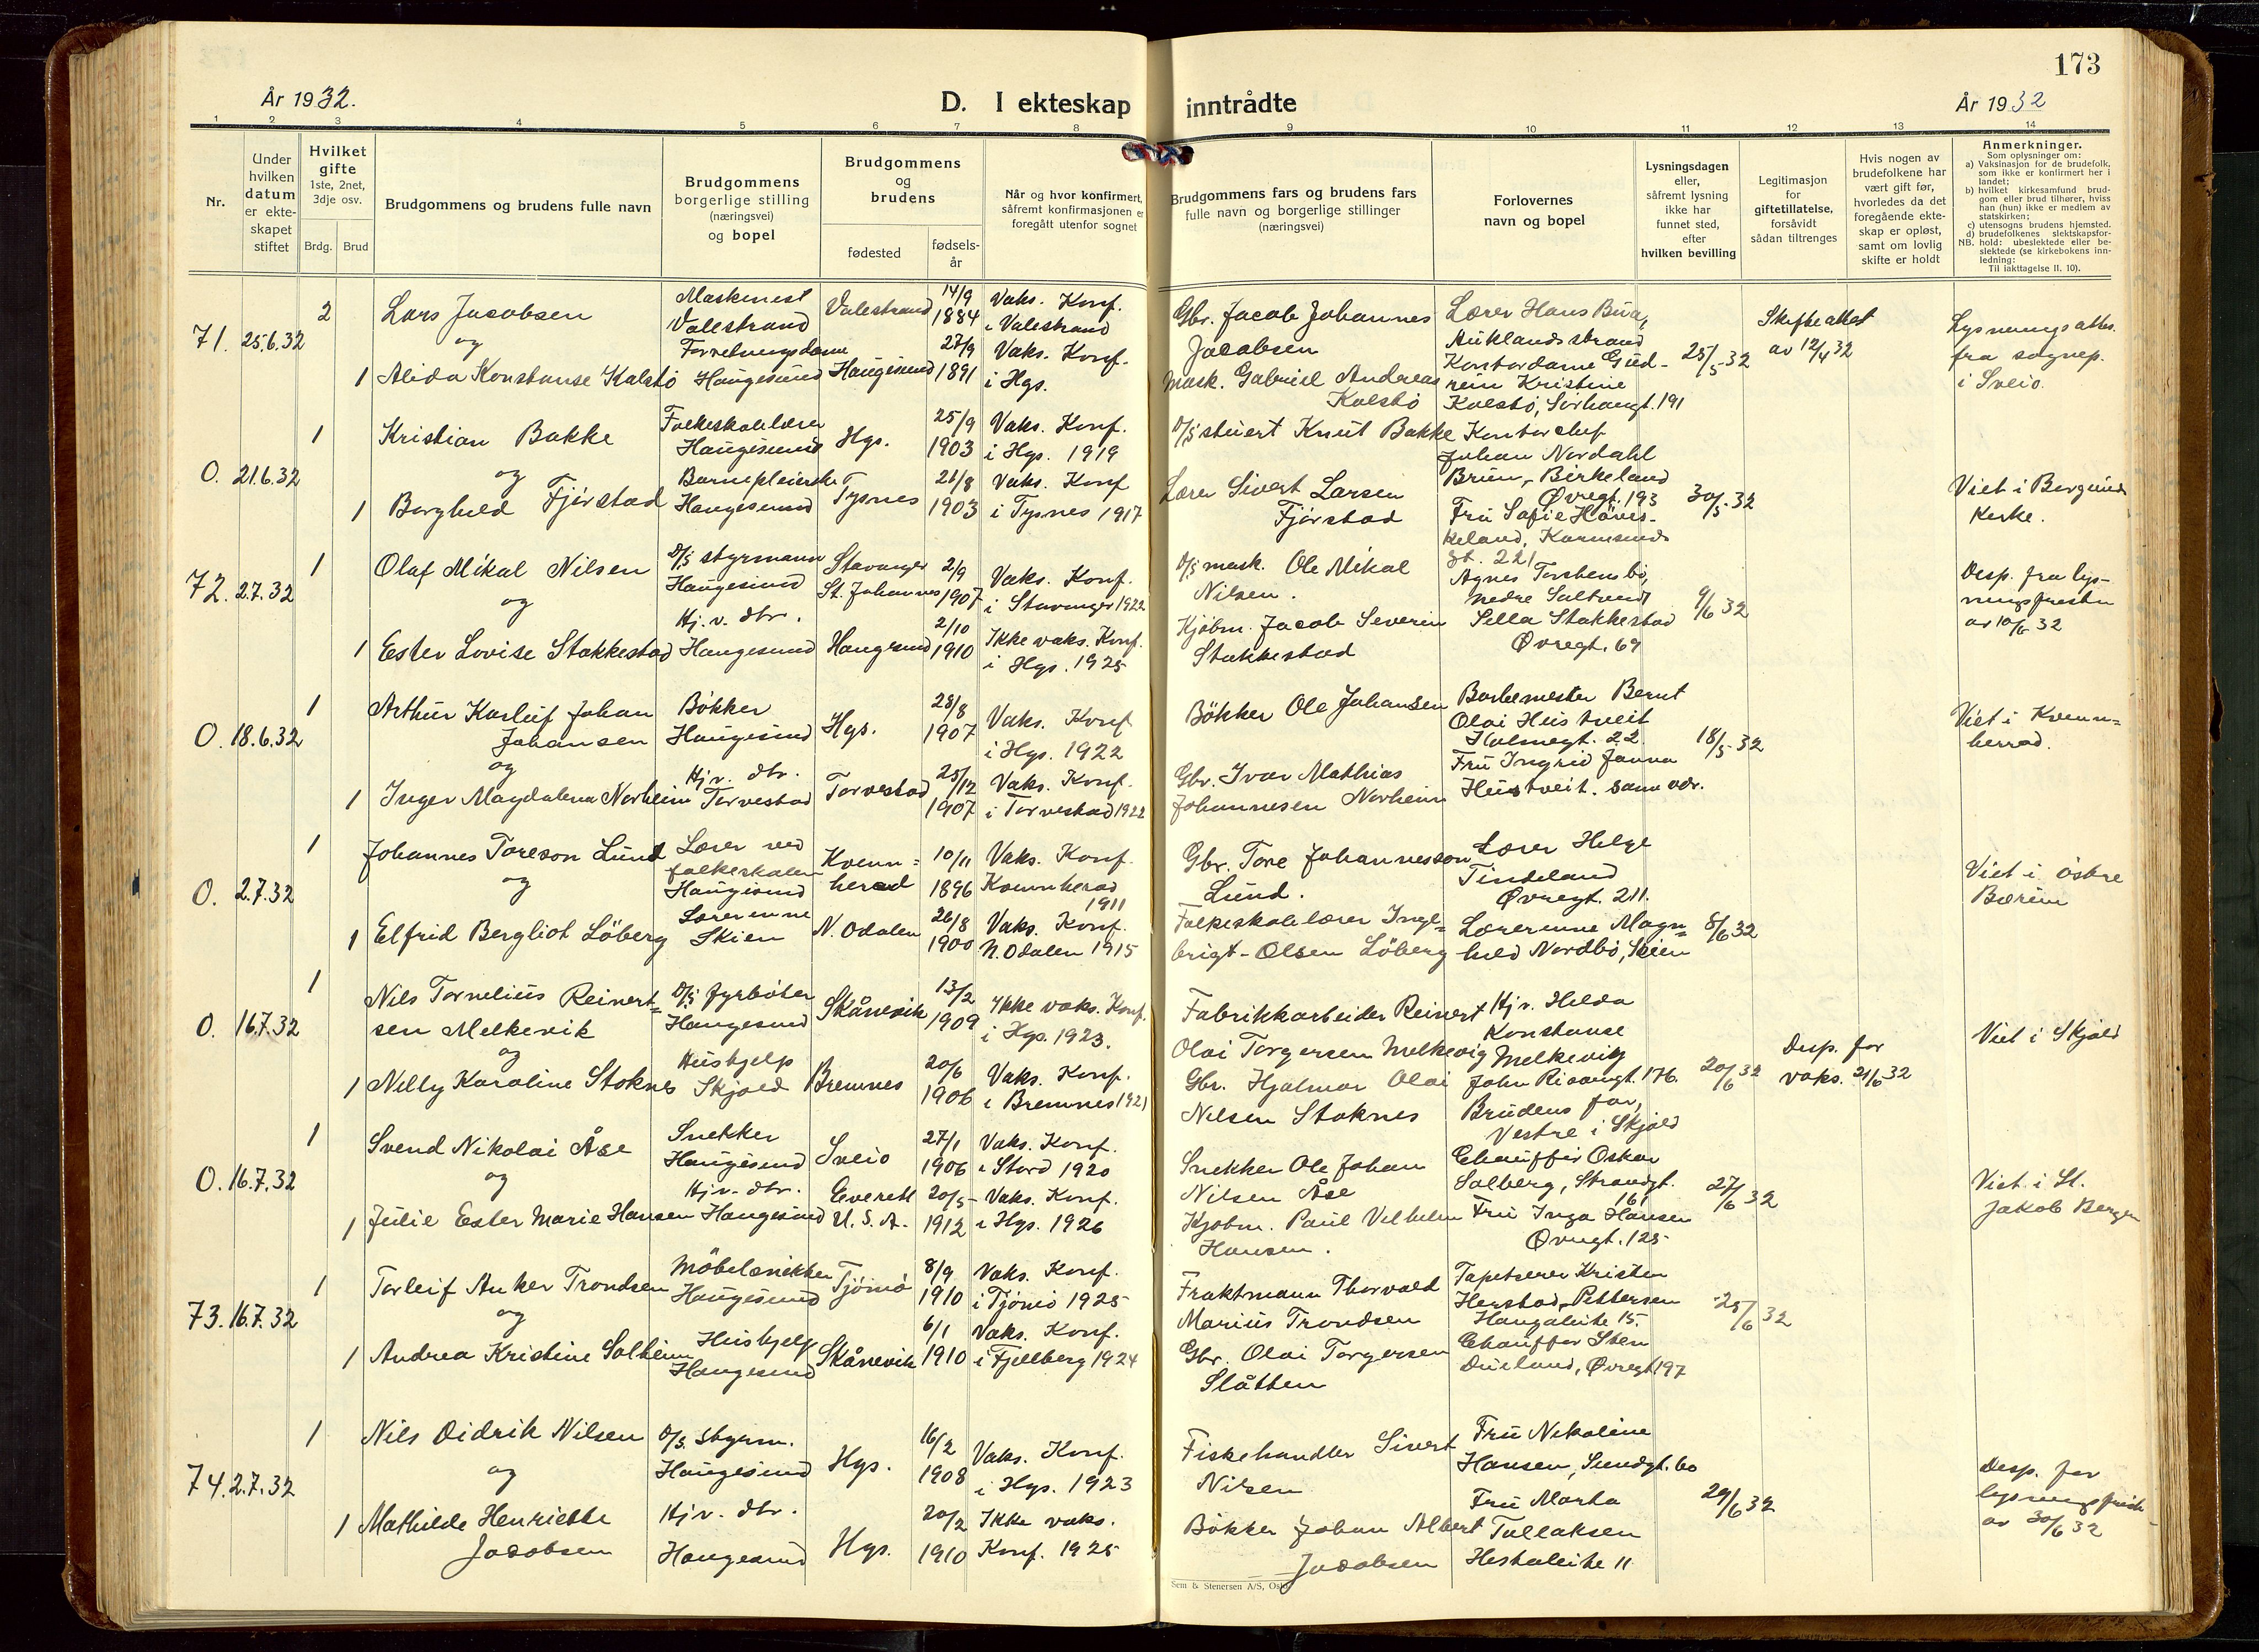 173
År 1932.
D. I ekteskap inntrådte
År 1932
1 2 3 4 5 6 7 8 9 10 11 12 13 14
Nr.
Under hvilken datum er ekteskapet stiftet
Hvilket gifte
1ste, 2net, 3dje osv.
Brdg. Brud
Brudgommens og brudens fulle navn
Brudgommens borgerlige stilling (næringsvei) og bopel
Brudgommens og brudens
fødested
fødselsår
Når og hvor konfirmert, såfremt konfirmasjonen er foregått utenfor sognet
Brudgommens fars og brudens fars fulle navn og borgerlige stillinger (næringsvei)
Forlovernes navn og bopel
Lysningsdagen eller, såfremt lysning ikke har funnet sted, efter hvilken bevilling
Legitimasjon for giftetillatelse, forsåvidt sådan tiltrenges
Hvis nogen av brudefolkene har vært gift før, hvorledes da det foregående ekteskap er opløst, samt om lovlig skifte er holdt
Anmerkninger.
Som oplysninger om:
a) Vaksinasjon for de brudefolk, som ikke er konfirmert her i landet;
b) hvilket kirkesamfund brudgom eller brud tilhører, hviss han (hun) ikke er medlem av statskirken;
c) utensogns brudens hjemsted.
d) brudefolkenes slektskapsforhold: ubeslektede eller beslektede (se kirkebokens innledning:
NB.
Til iakttagelse II. 10).
71. 25.6.32
2 Lars Jacobsen
og
1 Alida Konstanse Kalstø
Maskinest
Valestrand
Forretningsdame
Haugesund
Valestrand
Haugesund
14/9 1884
27/9 1891
Vaks. Konf.
i Valestrand
Vaks. Konf.
i Hgs.
Gbr. Jacob Johannes
Jacobsen
Mask. Gabriel Andreas
Kalstø
Lærer Hans Bua,
Auklandsstrand
Kontordame Gud-
run Kristine
Kalstø, Sørhaugt. 191
25/5-32
Skifteattest
av 12/4 32
Lysningsattes.
fra sognep.
i Sveio.
0. 21.6.32
1 Kristian Bakke
og
1 Borghild Fjørstad
Folkeskolelærer
Haugesund
Barnepleierske
Haugesund
Hgs.
Tysnes
25/9 1903
21/8 1903
Vaks. Konf.
i Hgs. 1919
Vaks. Konf
i Tysnes 1917
D/s stuert Knut Bakke
Lærer Sivert Larsen
Fjørstad
Kontorchef
Johan Nordahl
Brun, Birkeland
Øvregt. 193
Fru Sofie Høves-
keland, Karmsunds
gt. 221
30/5-32
Viet i Borgund
Kirke.
72. 2.7.32
1 Olaf Mikal Nilsen
og
1 Ester Lovise Stakkestad
D/s styrmann
Haugesund
Hj. v. dtr.
Haugesund
Stavanger
St. Johannes
Haugesund
2/9 1907
2/10 1910
Vaks. Konf.
i Stavanger 1922
Ikke vaks. Konf.
i Hgs. 1925
D/s mask. Ole Mikal
Nilsen.
Kjøbm. Jacob Severin
Stakkestad
Agnes Torstensbø,
nedre Saltund
Sella Stakkestad
Øvregt. 69
9/6 32
Desp. fra lys-
ningsfristen
av 10/6 32
0. 18.6.32
1 Arthur Karluf Johan
Johansen
og
1 Inger Magdalena Norheim
Bøkker
Haugesund
Hj v. dtr.
Torvestad
Hgs.
Torvestad
28/8 1907
25/12 1907
Vaks. Konf
i Hgs. 1922
Vaks. Konf.
i Torvestad 1922
Bøkker Ole Johansen
Gbr. Ivar Mathias
Johannesen Norheim
Barbermester Bernt
Olai Hustveit
Holmegt. 22.
Fru Ingrid Janna
Hustveit. samme adr.
18/5-32
Viet i Kvenn=
herrad.
0. 2.7.32
1 Johannes Toreson Lund
og
1 Elfrid Bergliot Løberg
Lærer ved
folkeskolen
Haugesund
Lærerinne
Skien
Kvenn=
herad
N. Odalen
10/11 1896
26/8 1900
Vaks. Konf.
Kvennherad
1911
Vaks. Konf.
N. Odalen 1915
Gbr. Tore Johannesson
Lund.
Folkeskolelærer Inge=
brigt-Olsen Løberg
Lærer Helge
Tindeland
Øvregt. 211.
Lærerinne Magn=
hild Nordbø, Skien
8/6 32
Viet i østre
Bærum
0. 16.7.32
1 Nils Tornelius Reinert=
sen Melkevik
og
1 Nelly Karoline Stoknes
D/s fyrbøter
Haugesund
Hushjelp
Skjold
Skånevik
Bremnes
13/2 1909
20/6 1906
Ikke vaks. Konf.
i Hgs. 1923.
Vaks. Konf.
i Bremnes 1921
Fabrikkarbeider Reinert
Olai Torgersen Melkevig
Gbr. Hjalmar Olai
Nilsen Stoknes
Hj v. Hilda
Konstanse
Melkevig
John Risangt. 176.
Brudens far,
Vestre i Skjold
20/6 32
Desp. for
vaks. 21/6 32
Viet i Skjold
0. 16.7.32
1 Svend Nikolai Åse
og
1 Julie Ester Marie Hansen
Snekker
Haugesund
Hj v. dtr.
Haugesund
Sveio
Everett
U. S. A.
27/1 1906
20/5- 1912
Vaks. Konf.
i Stord 1920
Vaks. Konf.
i Hgs. 1926
Snekker Ole Johan
Nilsen Åse
Kjøbm. Paul Vilhelm
Hansen.
Chauffør Oskar
Solberg, Strandgt.
161
Fru Inga Hansen
Øvregt. 125
27/6 32
Viet i St.
Jakob Bergen
73. 16.7.32
1 Torleif Anker Trondsen
og
1 Andrea Kristine Solheim
Møbelsnekker
Haugesund
Hushjelp
Haugesund
Tjømø
Skånevik
8/9 1910
6/1 1910
Vaks. Konf.
i Tjømø 1925
Vaks. Konf.
i Fjellberg 1924
Fraktmann Thorvald
Marius Trondsen
Gbr. Olai Torgersen
Slåtten
Tapetserer Kristen
Herstad, Pettersen
Haugaleite 15.
Chauffør Sten
Dueland, Øvregt 197
25/6 32
74. 2.7.32
1 Nils Didrik Nilsen
og
1 Mathilde Henriette
Jacobsen
D/s. styrm.
Haugesund
Hj v. dtr.
Haugesund
Hgs.
Hgs.
16/2 1908
20/2 1910
Vaks. Konf.
i Hgs. 1923
Ikke vaks.
Konf. 1925
Fiskehandler Sivert
Nilsen
Bøkker Johan Albert
Jacobsen
Fru Nikoline
Hansen, Sundgt. 60
Fru Marta
Tallaksen
Hestaleite 11
29/6 32
Desp. for
lysningsfrist-
av 30/6 32
Sem & Stenersen A/S, Oslo